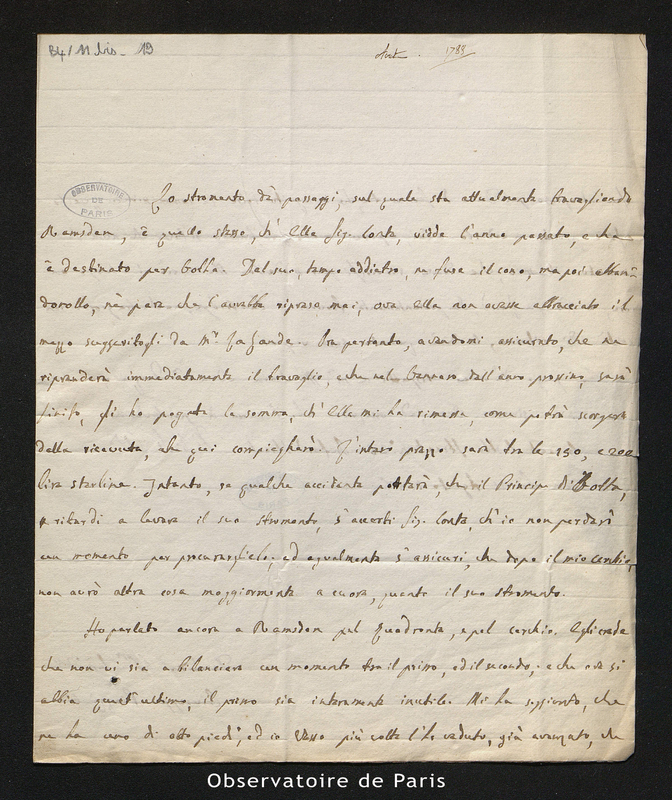 B4/11 bis - 19
Août . 1788
OBSERVATOIRE
DE
PARIS
Lo stromento da' passaggi, sul quale sta attualmente travagliando
Ramsden, è quello stesso, ch' Ella Sig. Conte, vidde l'anno passato, e che
è destinato per Gotha. Del suo, tempo addietro, ne fuse il cono, ma poi abban=
donollo, nè pare che l'avrebbe ripreso mai, ove ella non avesse abbracciato il
mezzo suggeritogli da Mr. La Lande. Ora pertanto, avendomi assicurato, che ne
riprenderà immediatamente il travaglio, e che nel Gennaro dell'anno prossimo, sarà
finito, gli ho pagata la somma, ch' Ella mi ha rimessa, come potrà scorgere
dalla ricevuta, che qui compiegherò. L'intero prezzo sarà tra le 150, e 200
lire sterline. Intanto, se qualche accidente porterà, che il Principe di Gotha,
ritardi a levare il suo stromento, s'accerti Sig. Conte, ch'io non perderò
un momento per procurarglielo; ed egualmente s'assicuri, che dopo il mio cerchio,
non avrò altra cosa maggiormente a cuore, quanto il suo stromento.
Ho parlato ancora a Ramsden pel Quadrante, e pel cerchio. Egli crede
che non vi sia a bilanciare un momento tra il primo, ed il secondo; e che ove si
abbia quest'ultimo, il primo sia interamente inutile. Mi ha soggiunto, che
ne ha uno di otto piedi, ed io stesso più volte l'ho veduto, già avanzato, che
Observatoire de Paris